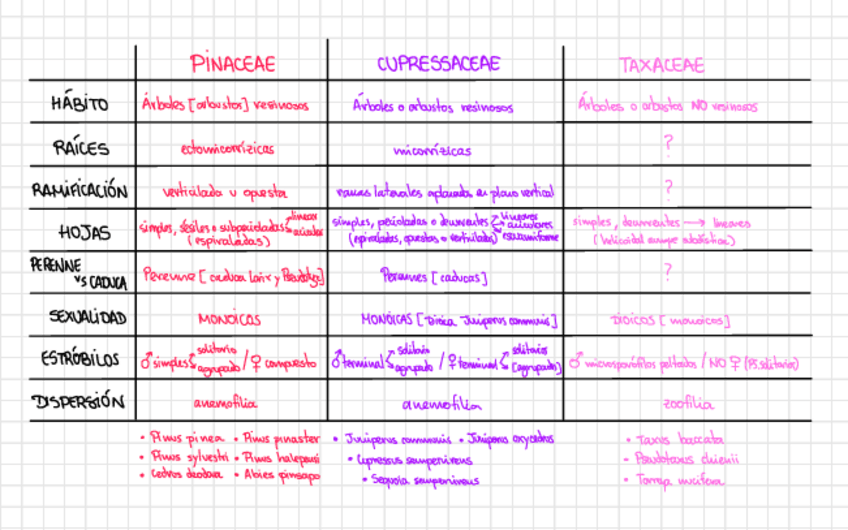 PINACEAE CUPRESSACEAE TAXACEAE
HÁBITO Árboles [arbustos] resinosos Árboles o arbustos resinosos Árboles o arbustos NO resinosos
RAÍCES ectomicorrízicas micorrízicas ?
RAMIFICACIÓN verticilada u opuesta ramas laterales aplanadas en plano vertical ?
HOJAS simples, sésiles o subpecioladas → linear → acicular (espiraladas) simples, pecioladas o decurrentes → lineares → aciculares → escuamiforme (espiraladas, opuestas o verticiladas) simples, decurrentes → lineares (helicoidal aunque subdística)
PERENNE vs CADUCA Perenne [caduca Larix y Pseudolarix] Perennes [caducas] ?
SEXUALIDAD MONOICOS MONÓICAS [Dioica Juniperus communis] DIOICOS [monoicos]
ESTRÓBILOS ♂ simples → solitario → agrupado / ♀ compuesto ♂ terminal → solitario → agrupado / ♀ terminal → solitarios → [agrupado] ♂ microsporófilos peltados / NO ♀ (PS. solitarios)
DISPERSIÓN anemofilia anemofilia zoofilia
• Pinus pinea • Pinus pinaster • Juniperus communis • Juniperus oxycedrus • Taxus baccata
• Pinus sylvestri • Pinus halepensi • Cupressus sempervirens • Pseudotaxus chienii
• Cedrus deodara • Abies pinsapo • Sequoia sempervirens • Torreya nucifera